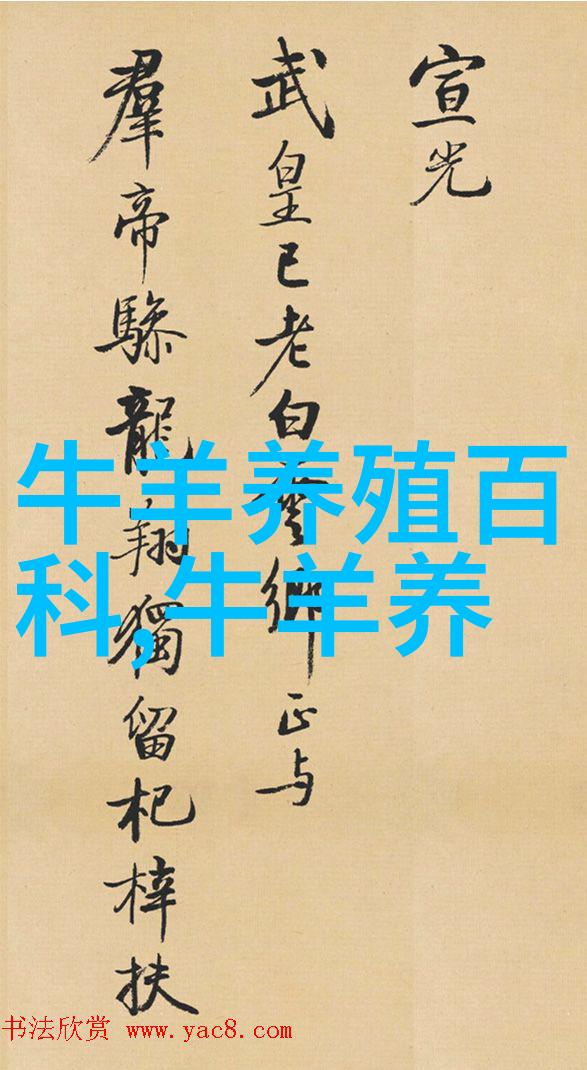 宣光
武皇已老白雲鄉正与
羣帝驂龍翔獨留杞梓扶
牛羊养殖百
科,牛羊养
书法欣赏 www.yac8.com